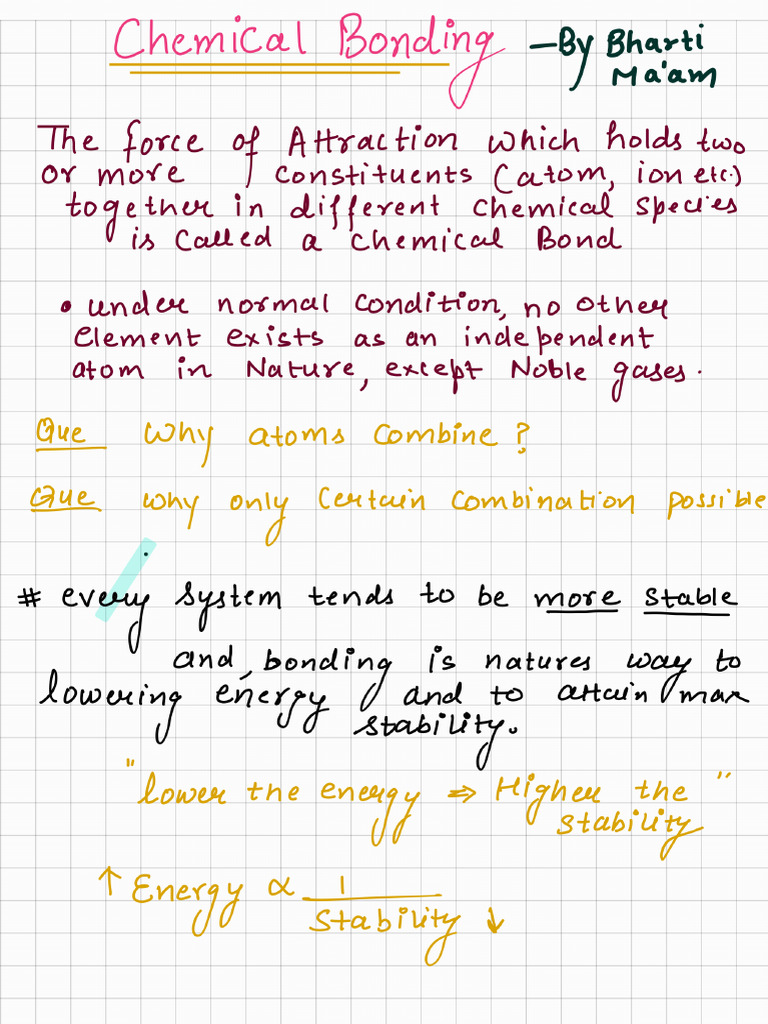 Chemical Bonding – By Bharti
Ma'am
The force of Attraction which holds two
or more constituents (atom, ion etc.)
together in different chemical species
is called a chemical Bond
• under normal condition, no other
element exists as an independent
atom in Nature, except Noble gases.
Que Why atoms combine?
Que why only certain combination possible
# every system tends to be more stable
and, bonding is natures way to
lowering energy and to attain max
stability.
"lower the energy ⇒ Higher the"
stability
↑ Energy ∝ 1
Stability ↓